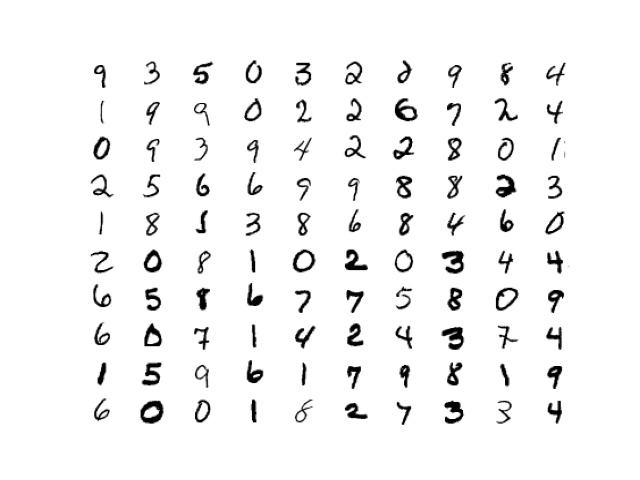 9 3 5 0 3 2 2 9 8 4
1 9 9 0 2 2 6 7 2 4
0 9 3 9 4 2 2 8 0 1
2 5 6 6 9 9 8 8 2 3
1 8 1 3 8 6 8 4 6 0
2 0 8 1 0 2 0 3 4 4
6 5 8 6 7 7 5 8 0 9
6 0 7 1 4 2 4 3 7 4
1 5 9 6 1 7 9 8 1 9
6 0 0 1 8 2 7 3 3 4